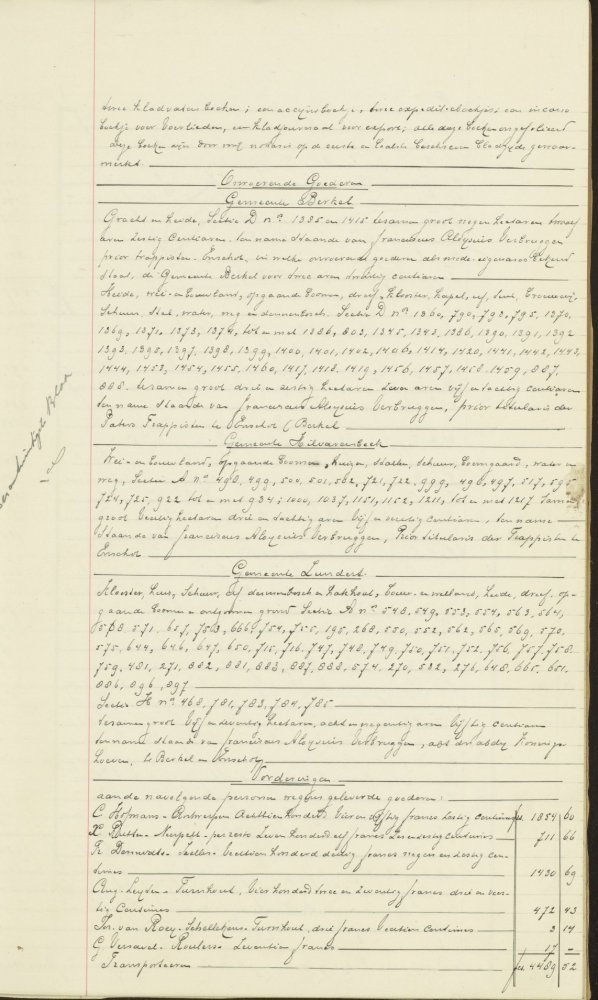 twee kladvaten boeken; een accijnsboekje, twee expeditieboekjes, een incasso
boekje voor voerlieden, een kladjournaal voor export; alle deze boeken ongefolieerd
deze boeken zijn door mij notaris op de eerste en laatste beschreven bladzijde gewaar-
merkt.
Onroerende Goederen
Gemeente Berkel
Gracht en heide, Sectie D nos. 1385 en 1415 tesamen groot negen hectaren twaalf
aren zestig centiaren. ten name staande van Franciscus Aloysius Verbruggen
prior trappisten Enschot, in welke onroerende goederen als mede-eigenares bekend
staat, de Gemeente Berkel voor twee aren veertig centiaren
Heide, wei- en bouwland, opgaande boomen, dreef, klooster, kapel, erf, tuin, brouwerij,
schuur, stal, water, weg en dennenbosch. Sectie D nos. 1360, 790, 793, 795, 1370,
1369, 1371, 1373, 1374, tot en met 1386, 803, 1345, 1343, 1386, 1390, 1391, 1392
1393, 1395, 1397, 1398, 1399, 1400, 1401, 1402, 1406, 1414, 1420, 1441, 1442, 1443,
1444, 1453, 1454, 1455, 1460, 1417, 1418, 1419, 1456, 1457, 1458, 1459, 887,
888. tesamen groot drie en zestig hectaren zeven aren vijf en tachtig centiaren
ten name staande van Franciscus Aloysius Verbruggen, prior titularis der
Paters Trappisten te Enschot (Berkel
Gemeente Hilvarenbeek
Wei- en bouwland, opgaande boomen, huizen, stallen, schuur, boomgaard, water en
weg, Sectie A nos. 498, 499, 500, 501, 502, 721, 722, 999, 496, 497, 517, 595
724, 725, 922 tot en met 934; 1000, 1037, 1151, 1152, 1211, tot en met 1217 samen
groot veertig hectaren drie en tachtig aren vijf en veertig centiaren, ten name
staande van Franciscus Aloysius Verbruggen, Prior titularis der Trappisten te
Enschot
Gemeente Zundert.
Klooster, huis, schuur, erf dennenbosch en hakhout, bouw- en weiland, heide, dreef, op-
gaande boomen en ontgonnen grond Sectie A nos. 548, 549, 553, 554, 563, 564,
568 571. 657, 753, 666, 754, 755, 195, 268, 550, 552, 562, 565, 569, 570,
575, 644, 646, 647, 650, 715, 716, 747, 748, 749, 750, 751, 752, 756, 757, 758
759, 481, 271, 882, 881, 883, 887, 888, 574, 270, 522, 276, 648, 665, 651.
886, 896, 897
Sectie H nos. 468, 781, 783, 784, 785
tesamen groot vijf en zeventig hectaren, acht en negentig aren vijftig centiaren
ten name staande van Franciscus Aloysius Verbruggen, abt der abdij Konings-
hoeven, te Berkel en Enschot.
Vorderingen
aan de navolgende personen wegens geleverde goederen:
C Hofmans - Antwerpen achttien honderd vier en vijftig francs zestig centimes fcs. 1854 60
X Butten - Neerpelt - per resto zeven honderd elf francs zes en zestig centimes 711 66
Fr. Dermerdts - Aeltre veertien honderd dertig francs negen en zestig cen-
times 1430 69
Aug. Leyten - Turnhout, vier honderd twee en zeventig francs drie en veer-
tig centimes 472 43
Jos. van Roey - Schellekens - Turnhout, drie francs veertien centimes 3 14
G. Versavel - Roulers - zeventien francs 17 —
Transporteeren fcs. 4489 52